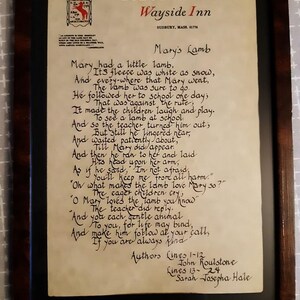 Wayside Inn
SUDBURY, MASS. 01776
Mary's Lamb
Mary had a little lamb,
Its fleece was white as snow,
And every-where that Mary went,
The lamb was sure to go.
He followed her to school one day;
That was against the rule;
It made the children laugh and play,
To see a lamb at school.
And so the teacher turned him out;
But still he lingered near,
And waited patiently about,
Till Mary did appear.
And then he ran to her and laid
His head upon her arm,
As if he said, "I'm not afraid,
You'll keep me from all harm."
"Oh what makes the lamb love Mary so?"
The eager children cry,
"O Mary loves the lamb you know"
The teacher did reply.
"And you each gentle animal
To you, for life may bind,
And make him follow at your call,
If you are always kind."
Authors Lines 1-12
John Roulstone
Lines 13-24
Sarah Josepha Hale